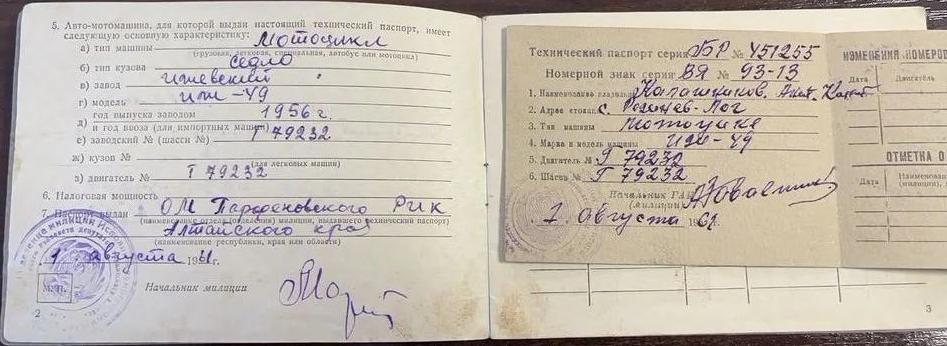 5. Авто-мотомашина, для которой выдан настоящий технический паспорт, имеет
следующую основную характеристику:
а) тип машины Мотоцикл
(грузовая, легковая, специальная, автобус или мотоцикл)
б) тип кузова седло
в) завод Ижевский
г) модель иж-49
д) год выпуска заводом 1956 г.
и год ввоза (для импортных машин)
е) заводский № (шасси №) Т 79232
ж) кузов №
(для легковых машин)
з) двигатель № Т 79232
6. Налоговая мощность
7. выдан ОМ РИК
(наименование отдела (отделения) милиции, выдавшего технический паспорт)
Алтайского края
(наименование республики, края или области)
1 августа 1961г.
М.П.
Начальник милиции
2
Технический паспорт серия БР № 451255
Номерной знак серия ВЯ № 93-13
1. Наименование владельца Калашников
2. Адрес с. Лог
3. Тип машины мотоцикл
4. Марка и модель машины ИЖ-49
5. Двигатель № Т 79232
6. Шасси № Т 79232
Начальник ГАИ
(милиции)
1 августа 1961
ИЗМЕНЕНИЯ НОМЕРОВ
Дата Двигатель
ОТМЕТКА О
Дата Наименование
(милиции),
3